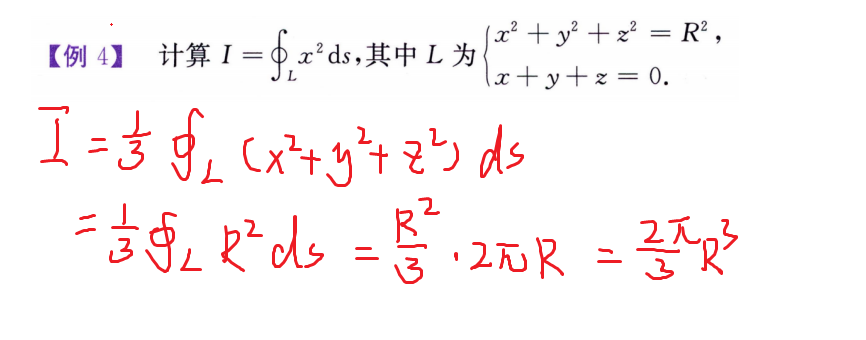 【例 4】 计算 I = ∮_L x² ds,其中 L 为 { x² + y² + z² = R²,
x + y + z = 0.
I = 1/3 ∮_L (x² + y² + z²) ds
= 1/3 ∮_L R² ds = R²/3 · 2πR = 2π/3 R³